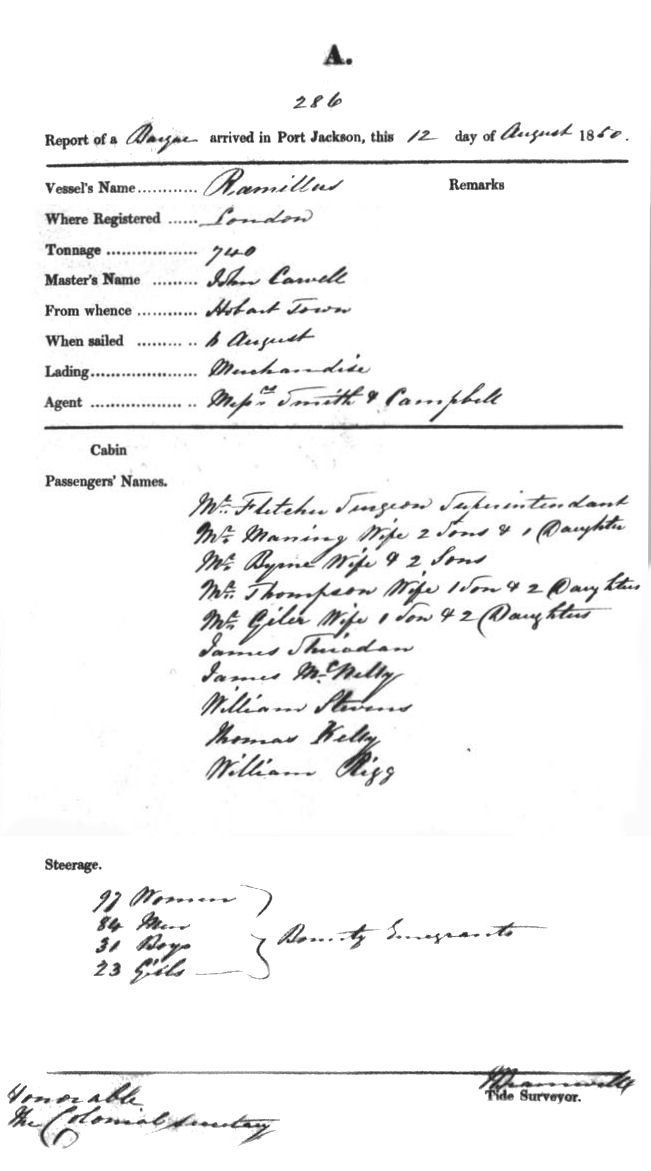 A.
286
Report of a Barque arrived in Port Jackson, this 12 day of August 1850.
Vessel's Name............ Ramillus Remarks
Where Registered ...... London
Tonnage .................. 740
Master's Name ......... John Cawell
From whence ............ Hobart Town
When sailed ......... .. 6 August
Lading..................... Merchandise
Agent .................. .. Messrs Smith & Campbell
Cabin
Passengers' Names.
Mr. Fletcher Surgeon Superintendant
Mr. Maning Wife 2 Sons & 1 Daughter
Mr. Byrne Wife & 2 Sons
Mr. Thompson Wife 1 Son & 2 Daughters
Mr. Giler Wife 1 Son & 2 Daughters
James
James McNelly
William Stevens
Thomas Kelly
William Rigg
Steerage.
97 Women
84 Men
30 Boys Bounty Emegrants
23 Girls
Tide Surveyor.
Honorable
The Colonial Secretary